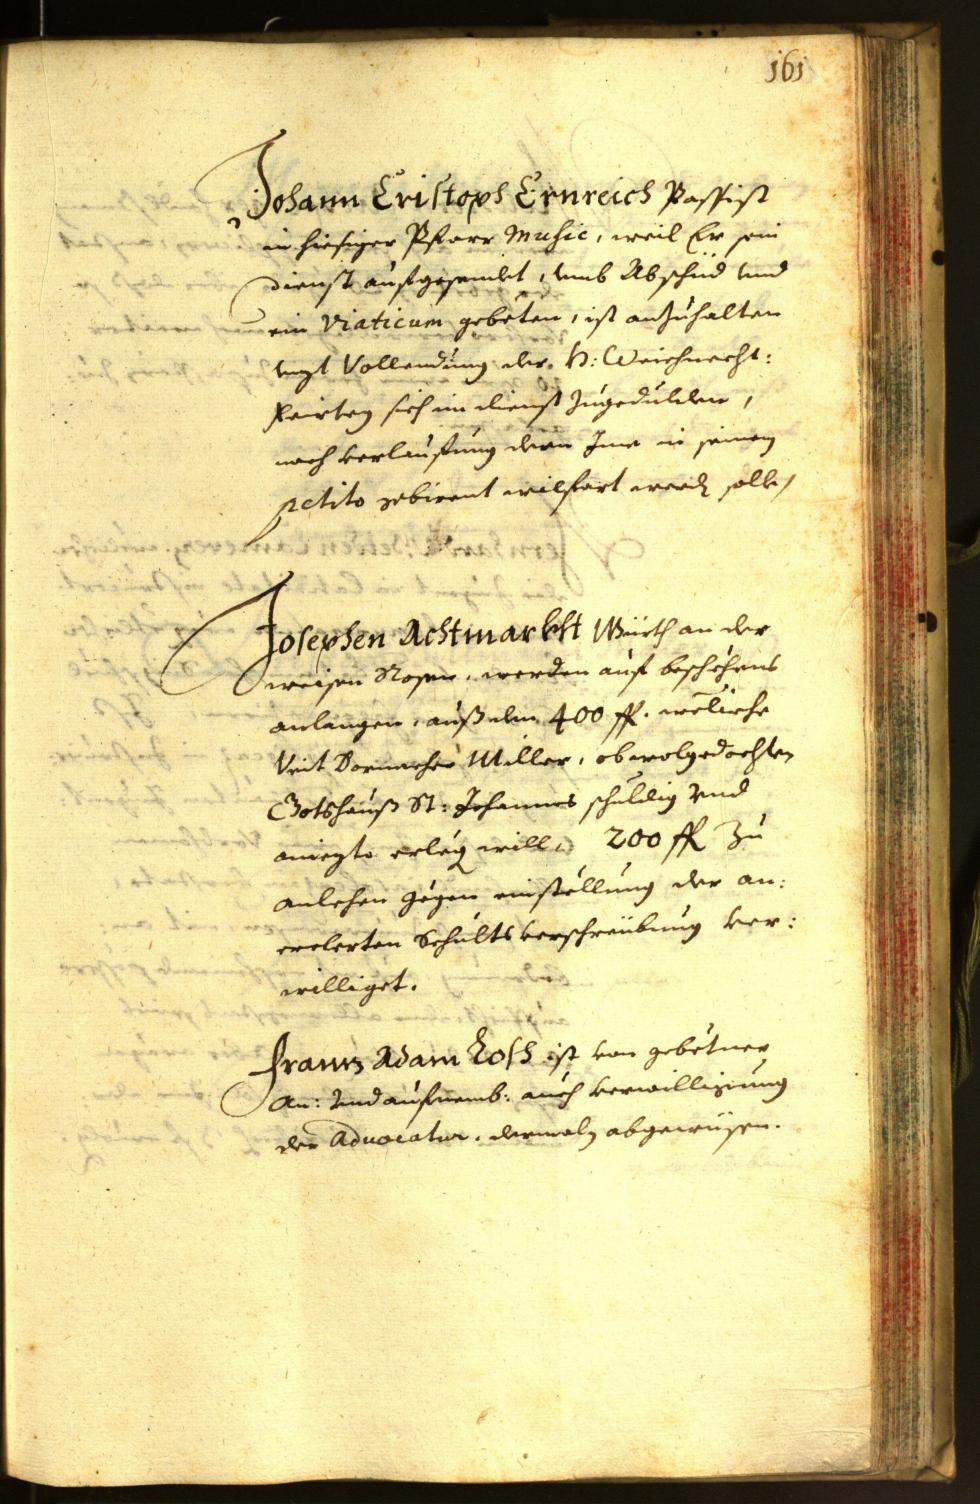 161
Johann Cristoph Ernreich Passist
in hiesiger Pfarr Music, weil Er sein
dienst aufgesendet, vmb Abschid vnd
ein Viaticum gebeten, ist anzuhalten
Vollendung der H: Weichnecht:
feirteg sich im dienst zugedulden,
nach verlauffung deren Ime in seinem
petito gebirent wilfart werden solle
Josephen Achtmarkht Würth an der
weisen Rosen, werden auf beschehens
anlangen, auß den 400 fl. weliche
Veit Dornacher Miller, obwolgedachten
Gotshauß St: Johannes schuldig vnd
aniezto erleg will, 200 fl zu
anlehen gegen einstellung der an:
erclerten Schultsverschreibung ver:
williget.
Franz Adam Losh ist von gebetner
An: vnd aufnemb: auch verwilligung
der Aduocatur, dermaln abgewisen.